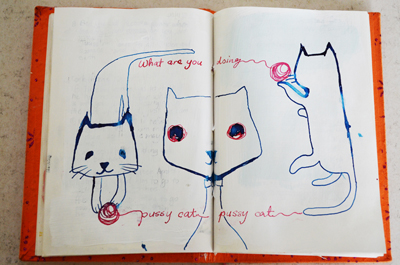 What are you doing
pussy cat pussy cat